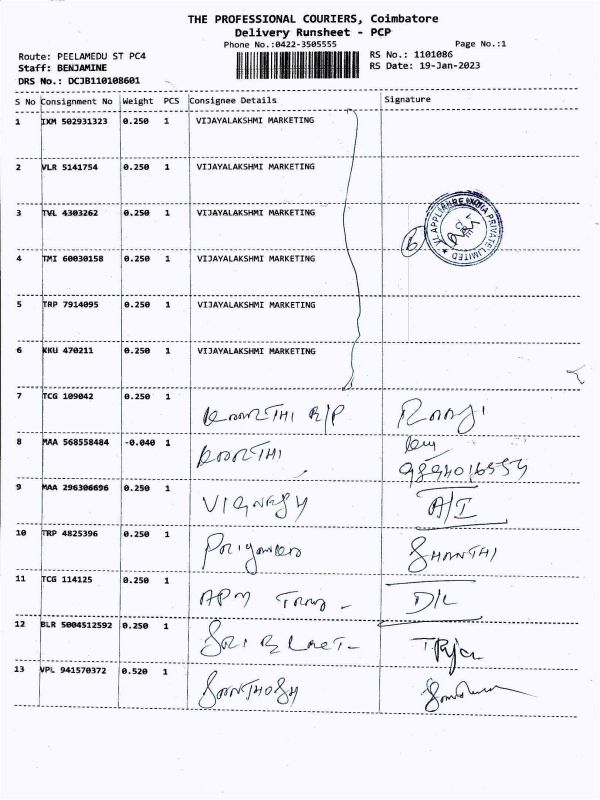 THE PROFESSIONAL COURIERS, Coimbatore
Delivery Runsheet - PCP
Phone No.:0422-3505555 Page No.:1
Route: PEELAMEDU ST PC4 RS No.: 1101086
Staff: BENJAMINE RS Date: 19-Jan-2023
DRS No.: DCJB110108601
S No Consignment No Weight PCS Consignee Details Signature
1 IXM 502931323 0.250 1 VIJAYALAKSHMI MARKETING
2 VLR 5141754 0.250 1 VIJAYALAKSHMI MARKETING
3 TVL 4303262 0.250 1 VIJAYALAKSHMI MARKETING
4 TMI 60030158 0.250 1 VIJAYALAKSHMI MARKETING
5 TRP 7914095 0.250 1 VIJAYALAKSHMI MARKETING
6 KKU 470211 0.250 1 VIJAYALAKSHMI MARKETING
7 TCG 109042 0.250 1
8 MAA 568558484 -0.040 1
9 MAA 296306696 0.250 1 VIGNESH A/I
10 TRP 4825396 0.250 1 SHANTHI
11 TCG 114125 0.250 1 APM D/L
12 BLR 5004512592 0.250 1 SRI
13 VPL 941570372 0.520 1 SANTHOSH
PRIVATE LIMITED